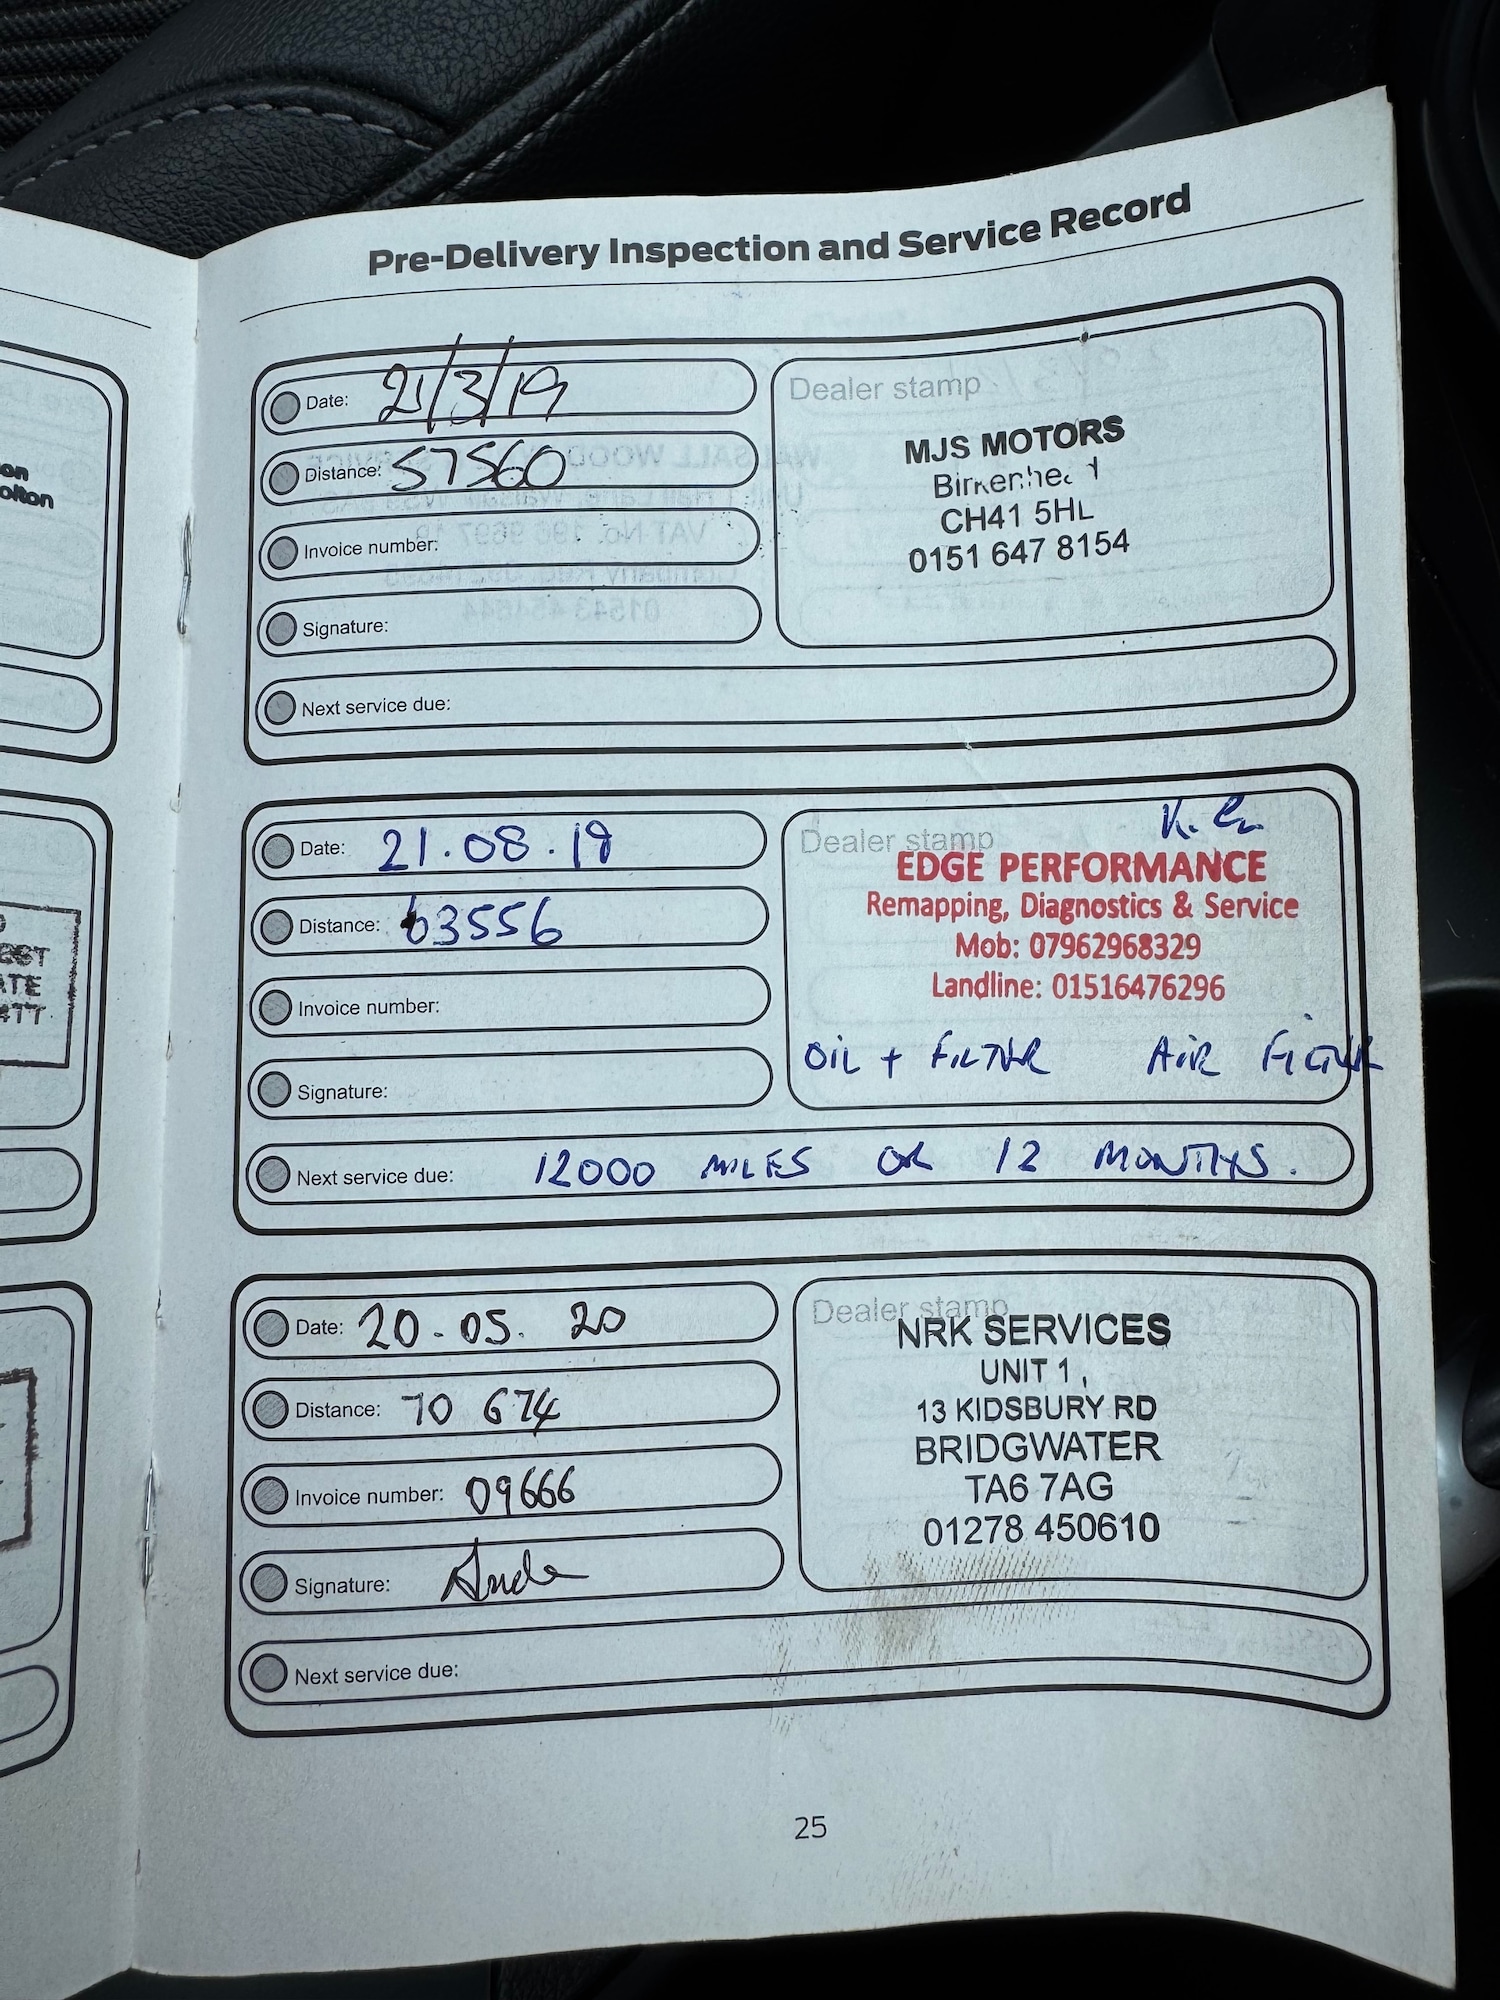 Pre-Delivery Inspection and Service Record
Date: 21/3/19
Distance: 57560
Invoice number:
Signature:
Next service due:
Dealer stamp
MJS MOTORS
Birkenhead
CH41 5HL
0151 647 8154
Date: 21.08.19
Distance: 63556
Invoice number:
Signature:
Dealer stamp
EDGE PERFORMANCE
Remapping, Diagnostics & Service
Mob: 07962968329
Landline: 01516476296
OIL + FILTER AIR FILTER
Next service due: 12000 MILES OR 12 MONTHS.
Date: 20.05.20
Distance: 70 674
Invoice number: 09666
Signature:
Dealer stamp
NRK SERVICES
UNIT 1,
13 KIDSBURY RD
BRIDGWATER
TA6 7AG
01278 450610
Next service due:
25